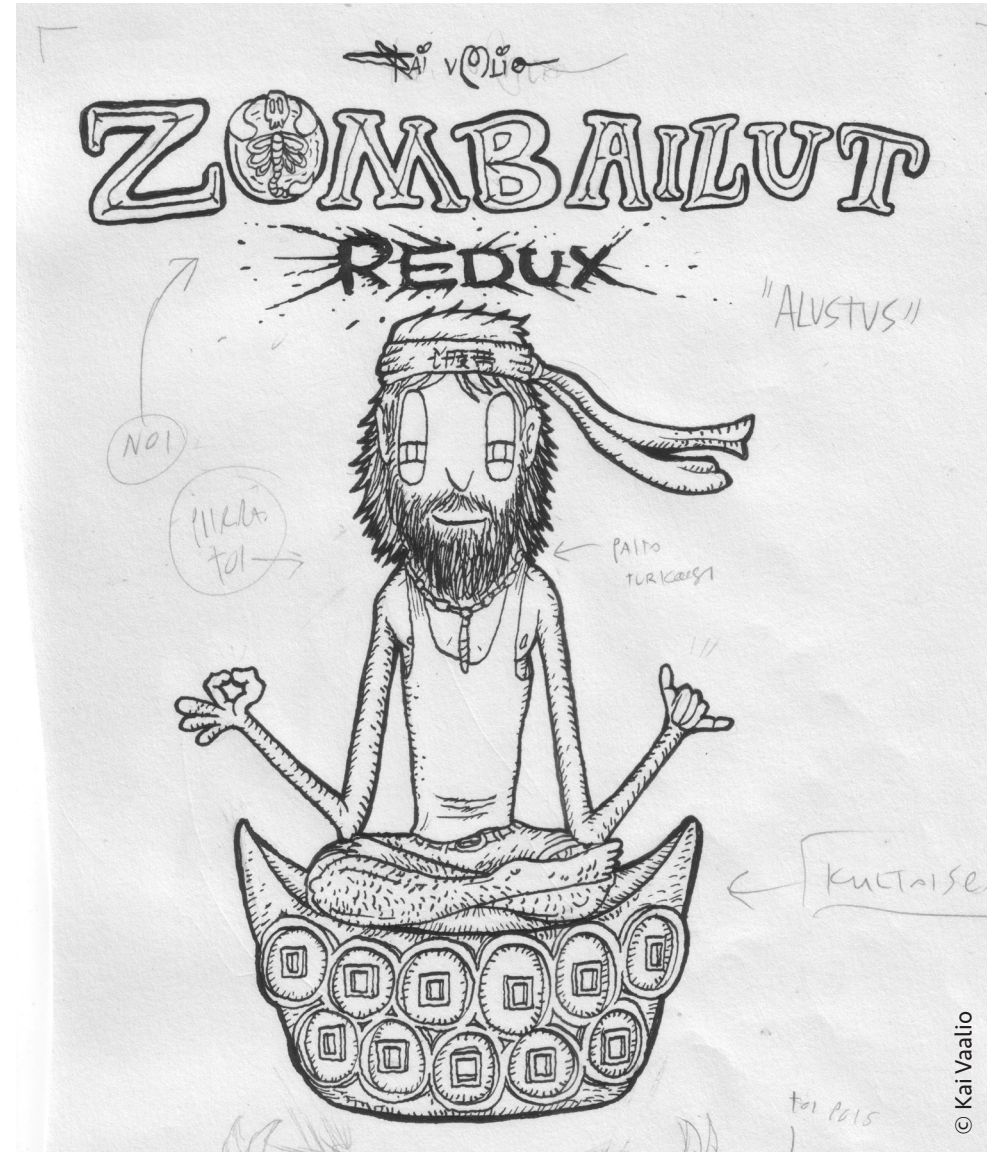 KAI VAALIO
ZOMBAILUT
REDUX
"ALUSTUS"
NOI
PIIRRÄ
TOI
PAITO
KULTAISE
TOI POIS
© Kai Vaalio